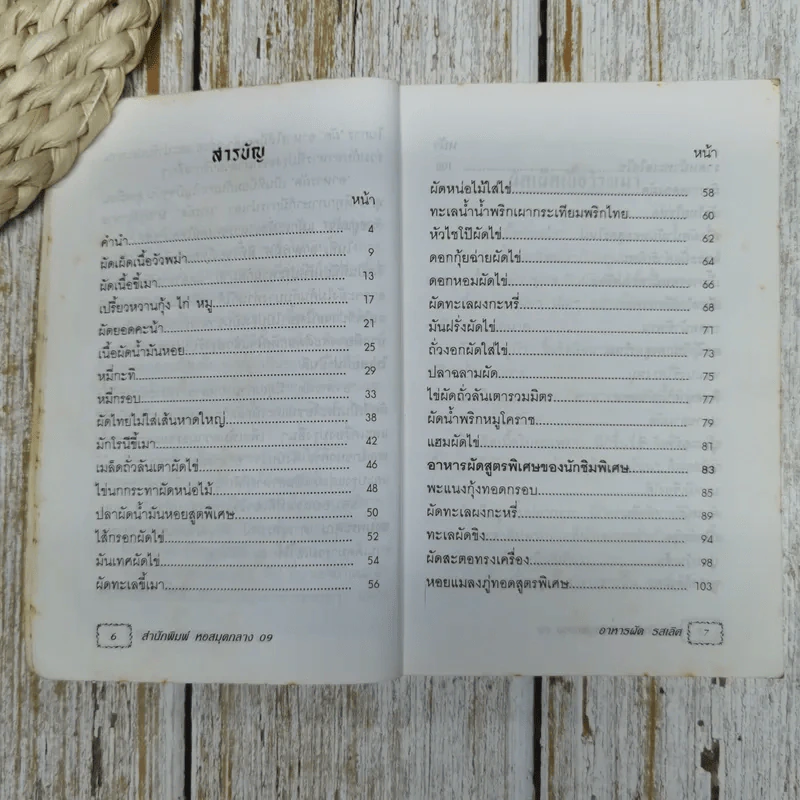 สารบัญ
หน้า
คำนำ 4
ผัดเผ็ดเนื้อวัวพม่า 9
ผัดเนื้อขี้เมา 13
เปรี้ยวหวานกุ้ง ไก่ หมู 17
ผัดยอดคะน้า 21
เนื้อผัดน้ำมันหอย 25
หมี่กะทิ 29
หมี่กรอบ 33
ผัดไทยไม่ใส่เส้นหาดใหญ่ 38
มักโรนีขี้เมา 42
เมล็ดถั่วลันเตาผัดไข่ 46
ไข่นกกระทาผัดหน่อไม้ 48
ปลาผัดน้ำมันหอยสูตพิเศษ 50
ไส้กรอกผัดไข่ 52
มันเทศผัดไข่ 54
ผัดทะเลขี้เมา 56
6 สำนักพิมพ์ หอสมุดกลาง 09
หน้า
ผัดหน่อไม้ใส่ไข่ 58
ทะเลน้ำน้ำพริกเผากระเทียมพริกไทย 60
หัวไชโป๊ผัดไข่ 62
ดอกกุ้ยฉ่ายผัดไข่ 64
ดอกหอมผัดไข่ 66
ผัดทะเลผงกะหรี่ 68
มันฝรั่งผัดไข่ 71
ถั่วงอกผัดใส่ไข่ 73
ปลาฉลามผัด 75
ไข่ผัดถั่วลันเตารวมมิตร 77
ผัดน้ำพริกหมูโคราช 79
แฮมผัดไข่ 81
อาหารผัดสูตรพิเศษของนักชิมพิเศษ 83
พะแนงกุ้งทอดกรอบ 85
ผัดทะเลผงกะหรี่ 89
ทะเลผัดขิง 94
ผัดสะตอทรงเครื่อง 98
หอยแมลงภู่ทอดสูตรพิเศษ 103
อาหารผัด รสเลิศ 7